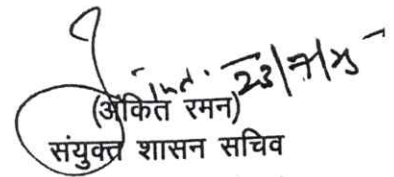 23/7/25
(अंकित रमन)
संयुक्त शासन सचिव